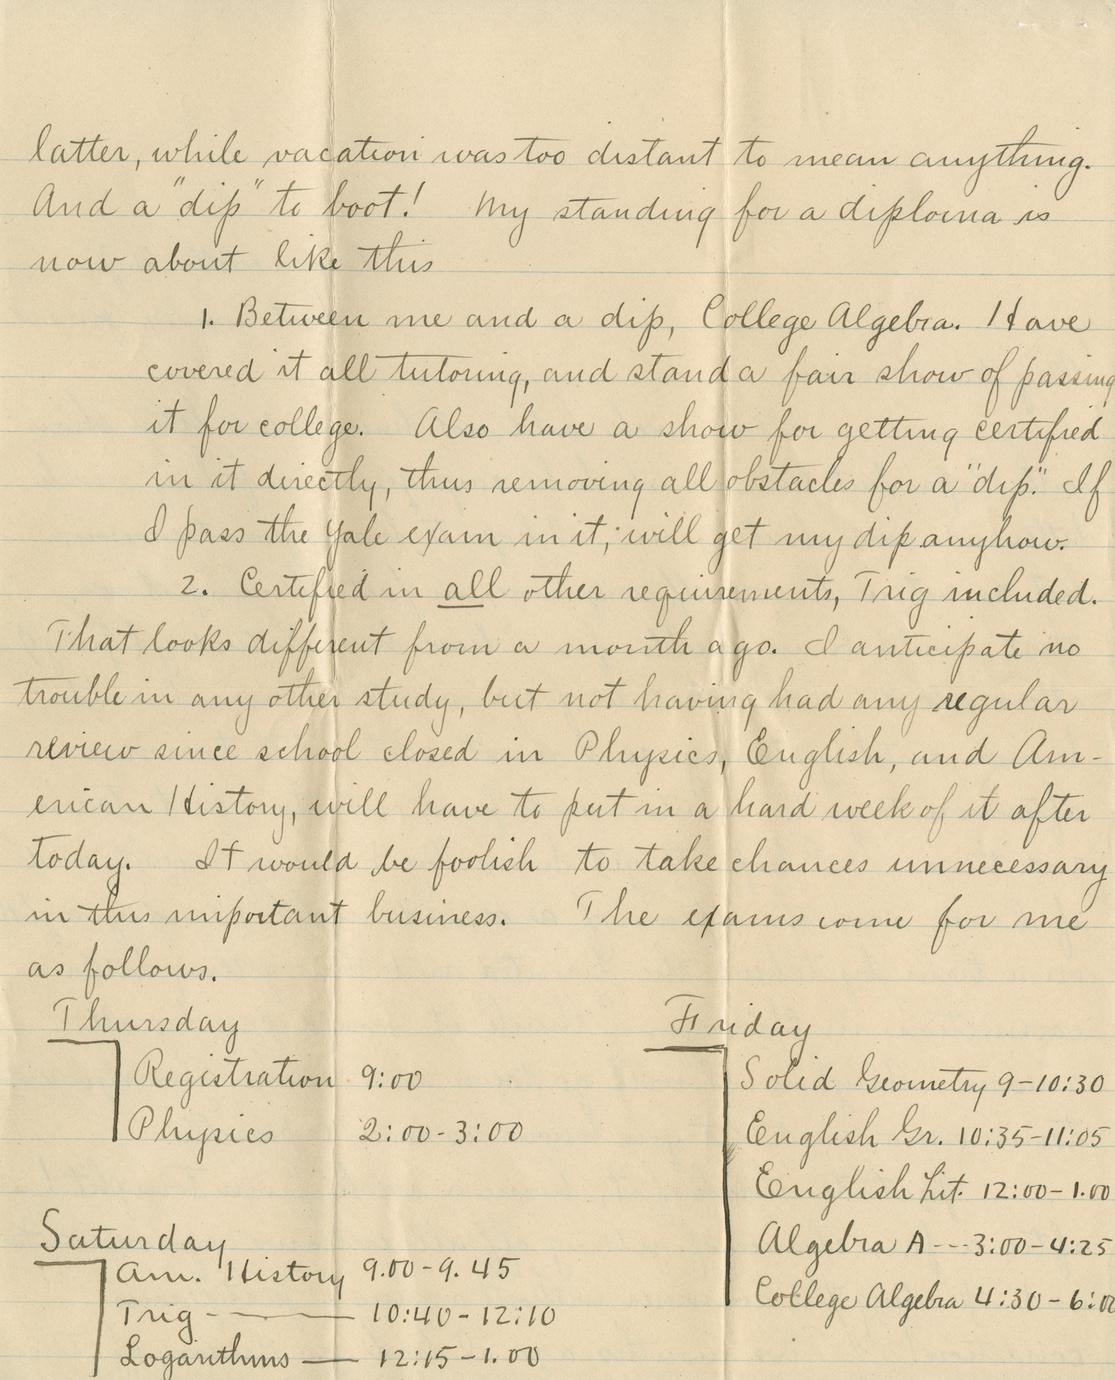 latter, while vacation was too distant to mean anything.
And a "dip" to boot! My standing for a diploma is
now about like this
1. Between me and a dip, College Algebra. Have
covered it all tutoring, and stand a fair show of passing
it for college. Also have a show for getting certified
in it directly, thus removing all obstacles for a "dip." If
I pass the Yale exam in it, will get my dip anyhow.
2. Certified in all other requirements, Trig included.
That looks different from a month ago. I anticipate no
trouble in any other study, but not having had any regular
review since school closed in Physics, English, and Am-
erican History, will have to put in a hard week of it after
today. It would be foolish to take chances unnecessary
in this important business. The exams come for me
as follows.
Thursday
Registration 9:00
Physics 2:00-3:00
Friday
Solid Geometry 9-10:30
English Gr. 10:35-11:05
English Lit. 12:00-1.00
Algebra A --- 3:00-4:25
College Algebra 4:30-6:00
Saturday
Am. History 9.00-9.45
Trig — 10:40-12:10
Logarithms — 12:15-1.00